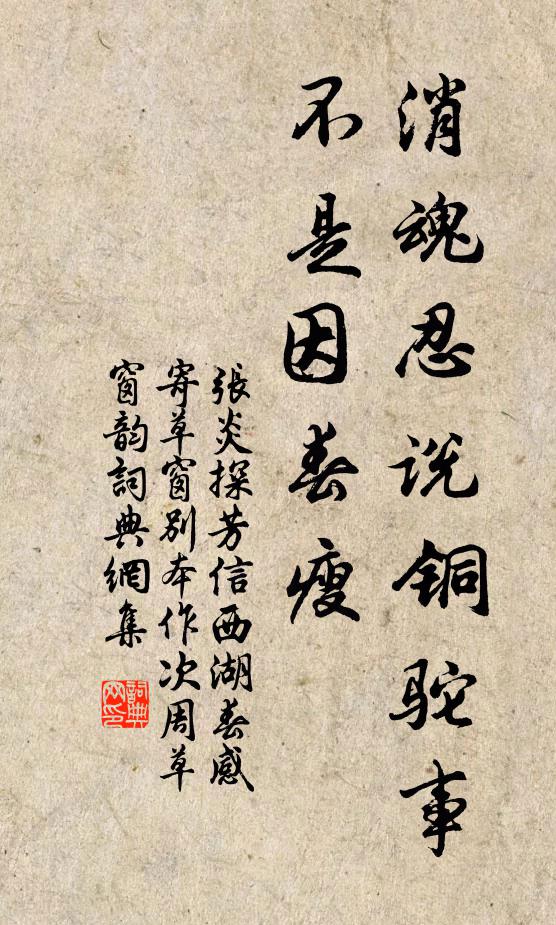 消魂忍说铜驼事
不是因春瘦
張炎探芳信西湖春感
寄草窗别本作次周草
窗韵詞典網集
詞典網印